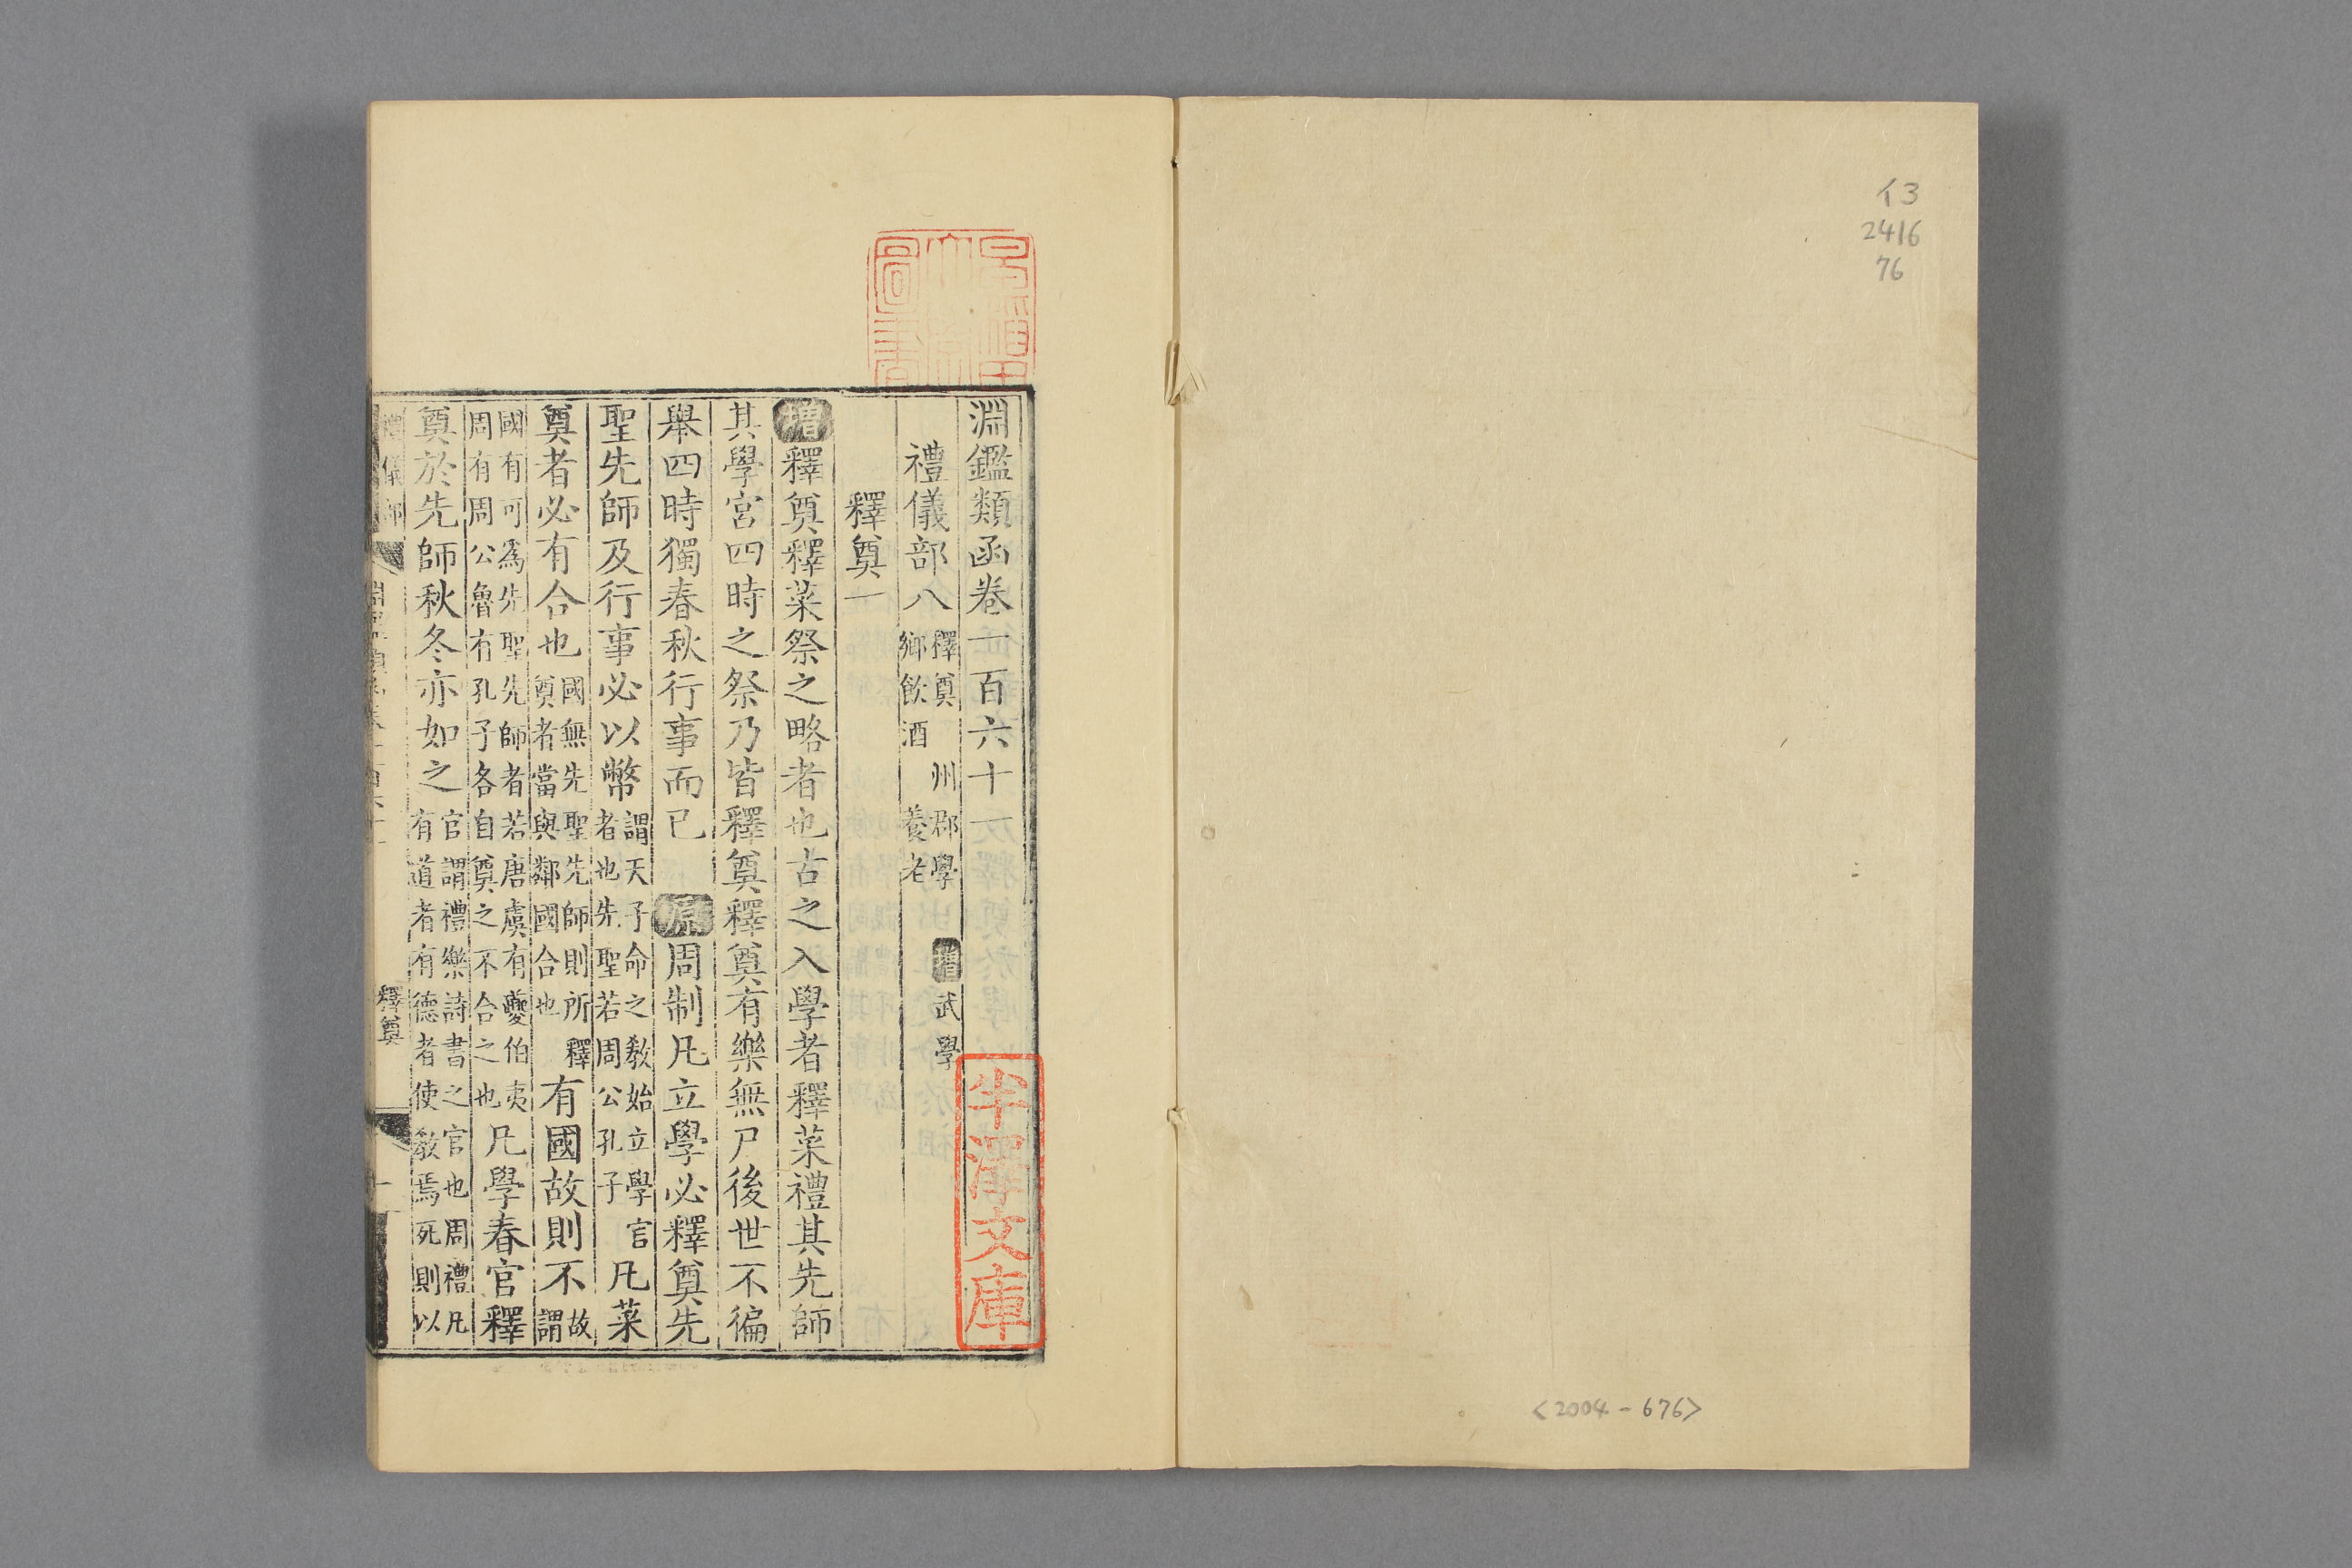 イ3
2416
76
<2004-676>
淵鑑類函卷一百六十一
禮儀部八 釋奠 州郡學 增 武學
鄉飲酒 養老
釋奠一
增釋奠釋菜祭之略者也古之入學者釋菜禮其先師
其學宮四時之祭乃皆釋奠釋奠有樂無尸後世不徧
舉四時獨春秋行事而已 原周制凡立學必釋奠先
聖先師及行事必以幣謂天子命之敎始立學官者也先聖若周公孔子凡菜
奠者必有合也國無先聖先師則所釋奠者當與鄰國合也有國故則不故謂
國有可爲先聖先師者若唐虞有夔伯夷周有周公魯有孔子各自奠之不合之也凡學春官釋
奠於先師秋冬亦如之官謂禮樂詩書之官也周禮凡有道者有德者使敎焉死則以
禮儀部
釋奠
一
半澤文庫